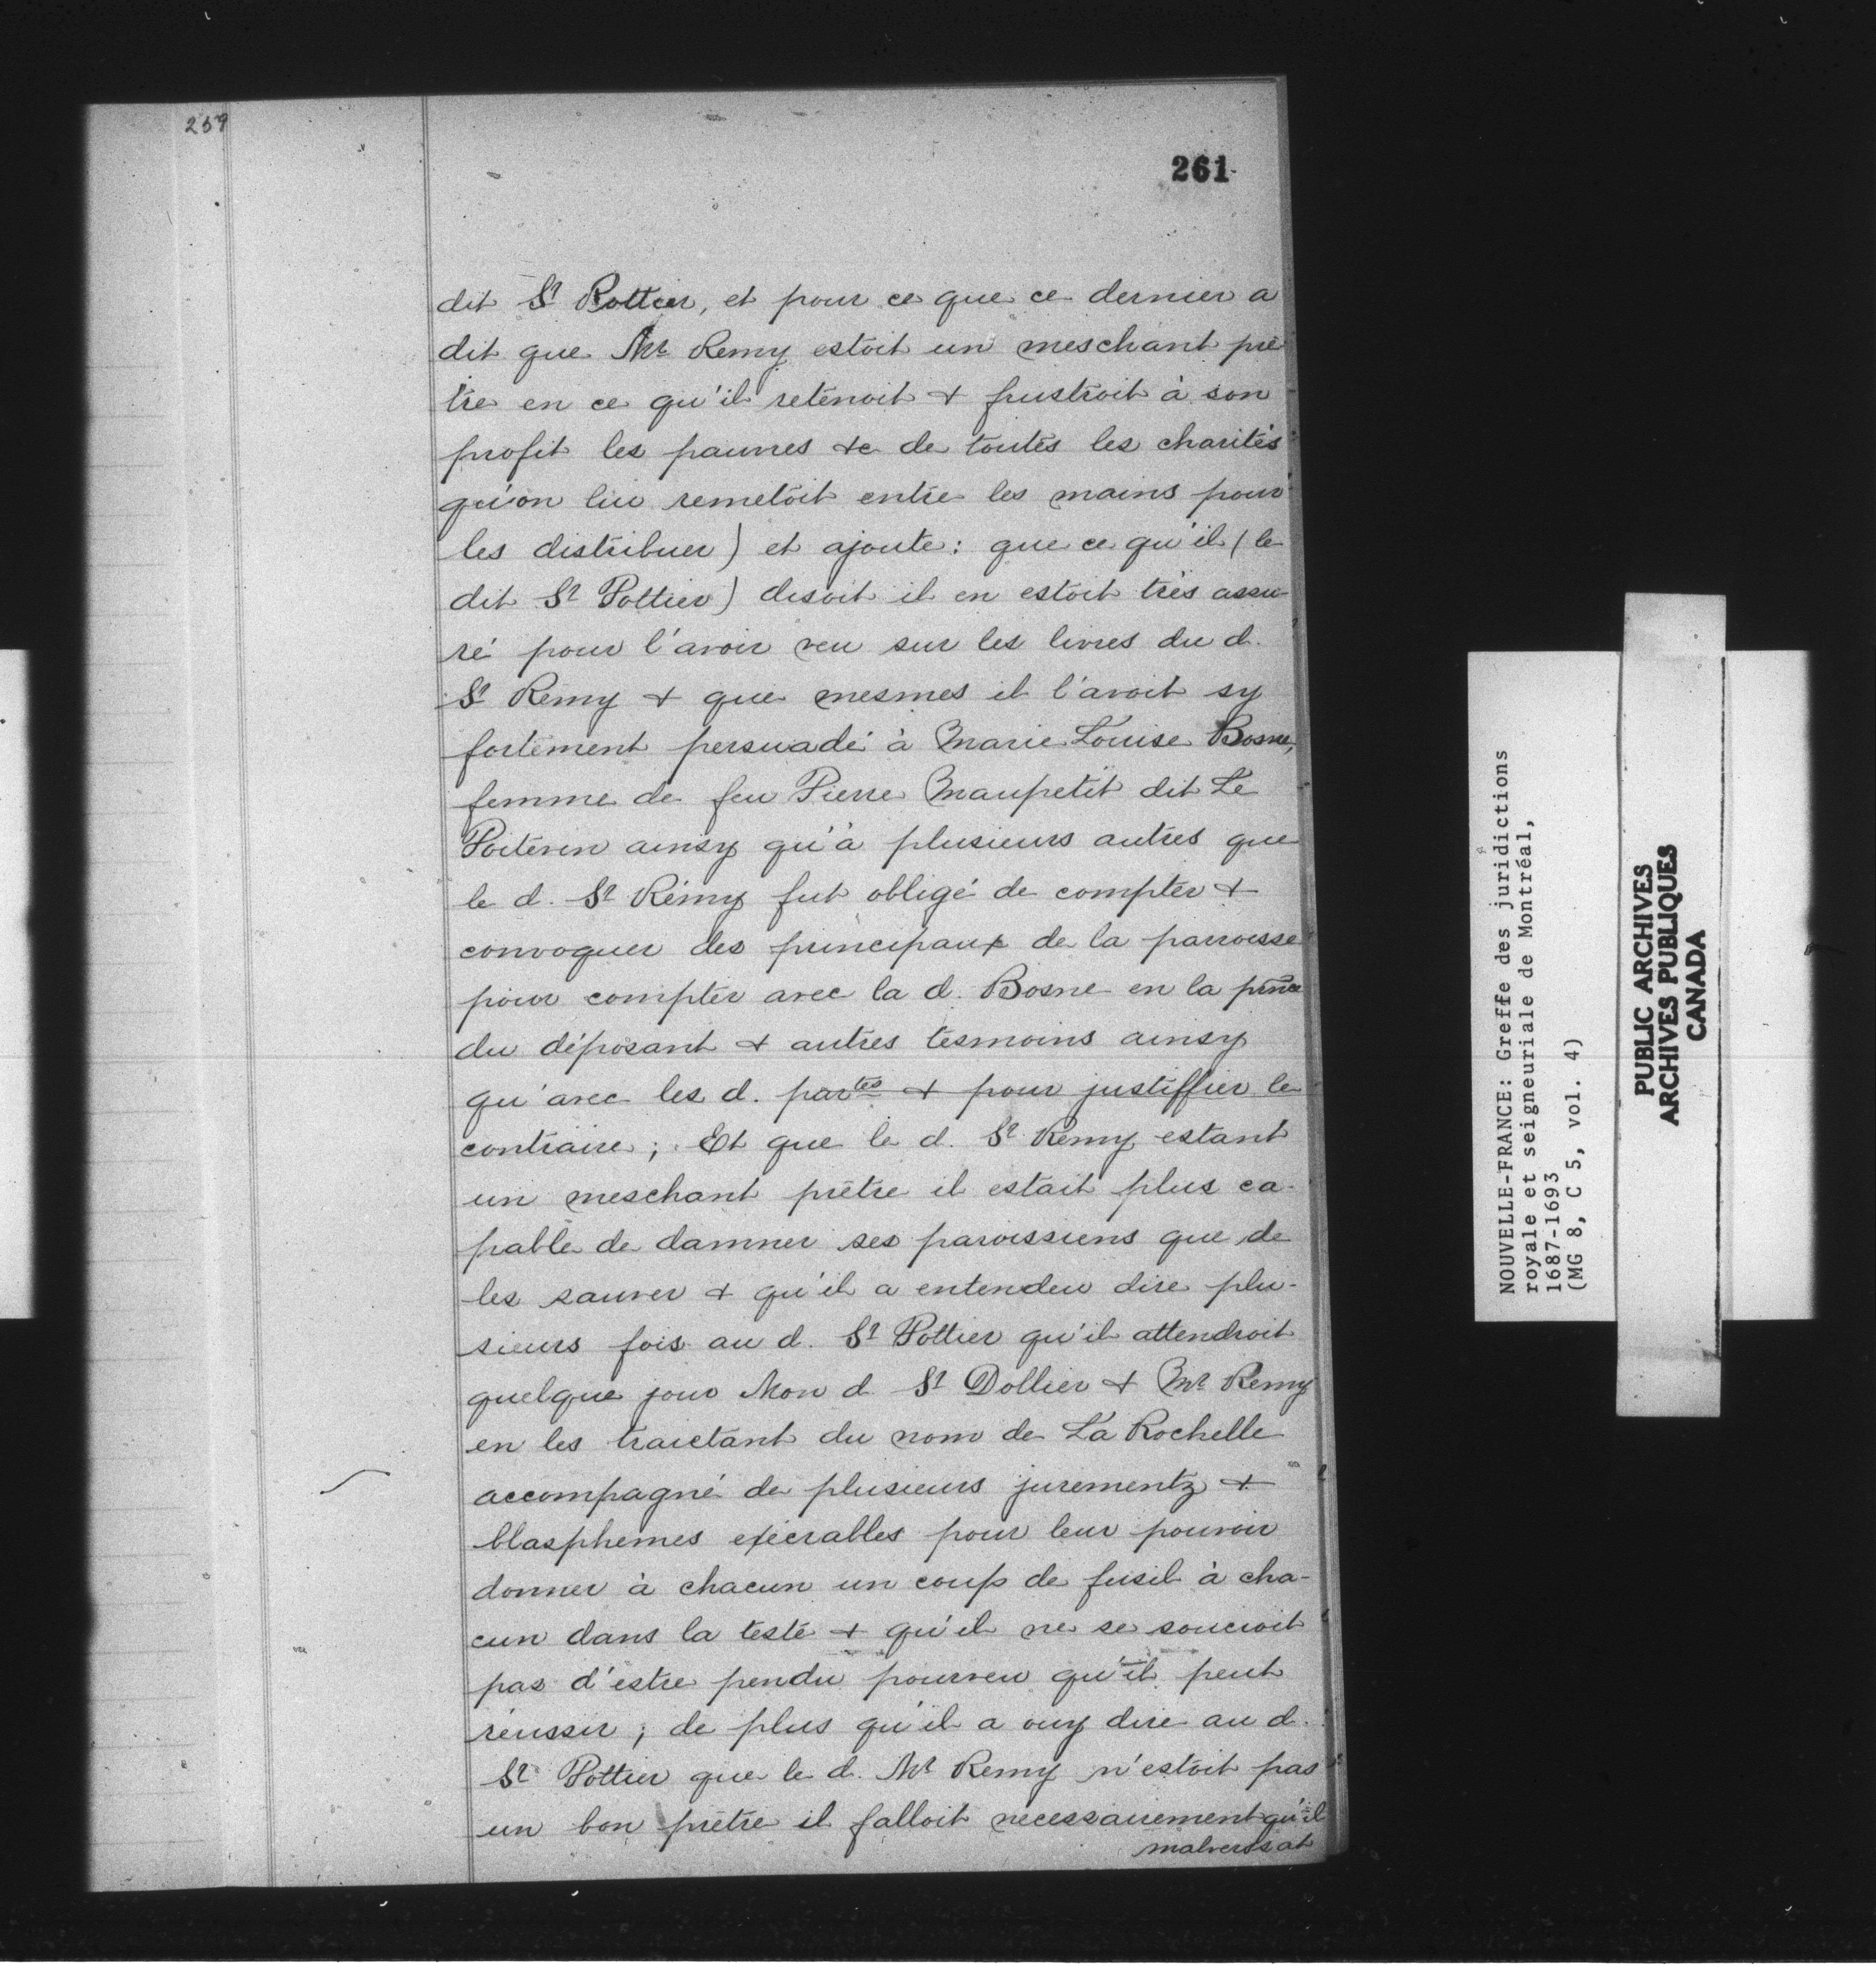 259
261
dit Sr Pottier, et pour ce que ce dernier a
dit que Mr Remy estoit un meschant prê
tre en ce qu'il retenoit & frustroit à son
profit les pauvres &c de toutes les charités
qu'on lui remetoit entre les mains pour
les distribuer) et ajoute: que ce qu'il (le
dit Sr Pottier) disoit il en estoit très assu-
ré pour l'avoir veu sur les livres du d.
Sr Remy & que mesmes il l'avoit sy
fortement persuadé à Marie Louise Bosne,
femme de feu Pierre Maupetit dit Le
Poitevin ainsy qu'à plusieurs autres que
le d. Sr Rémy fut obligé de compter &
convoquer des principaux de la parroisse
pour compter avec la d. Bosne en la pnce
du déposant & autres tesmoins ainsy
qu'avec les d. partes & pour justiffier le
contraire; Et que le d. Sr Remy estant
un meschant prêtre il estait plus ca-
pable de damner ses paroissiens que de
les sauver & qu'il a entendeu dire plu-
sieurs fois au d. Sr Pottier qu'il attendroit
quelque jour Mon d Sr Dollier & Mr Remy
en les traictant du nom de La Rochelle
accompagné de plusieurs jurementz &
blasphemes exécrables pour leur pouvoir
donner à chacun un coup de fusil à cha-
cun dans la teste & qu'il ne se soucioit
pas d'estre pendu pourveu qu'il peut
réussir; de plus qu'il a ouy dire au d.
Sr Pottier que le d. Mr Remy n'estoit pas
un bon prêtre il falloit necessairement qu'il
malversat
NOUVELLE-FRANCE: Greffe des juridictions
royale et seigneuriale de Montréal,
1687-1693
(MG 8, C 5, vol. 4)
PUBLIC ARCHIVES
ARCHIVES PUBLIQUES
CANADA